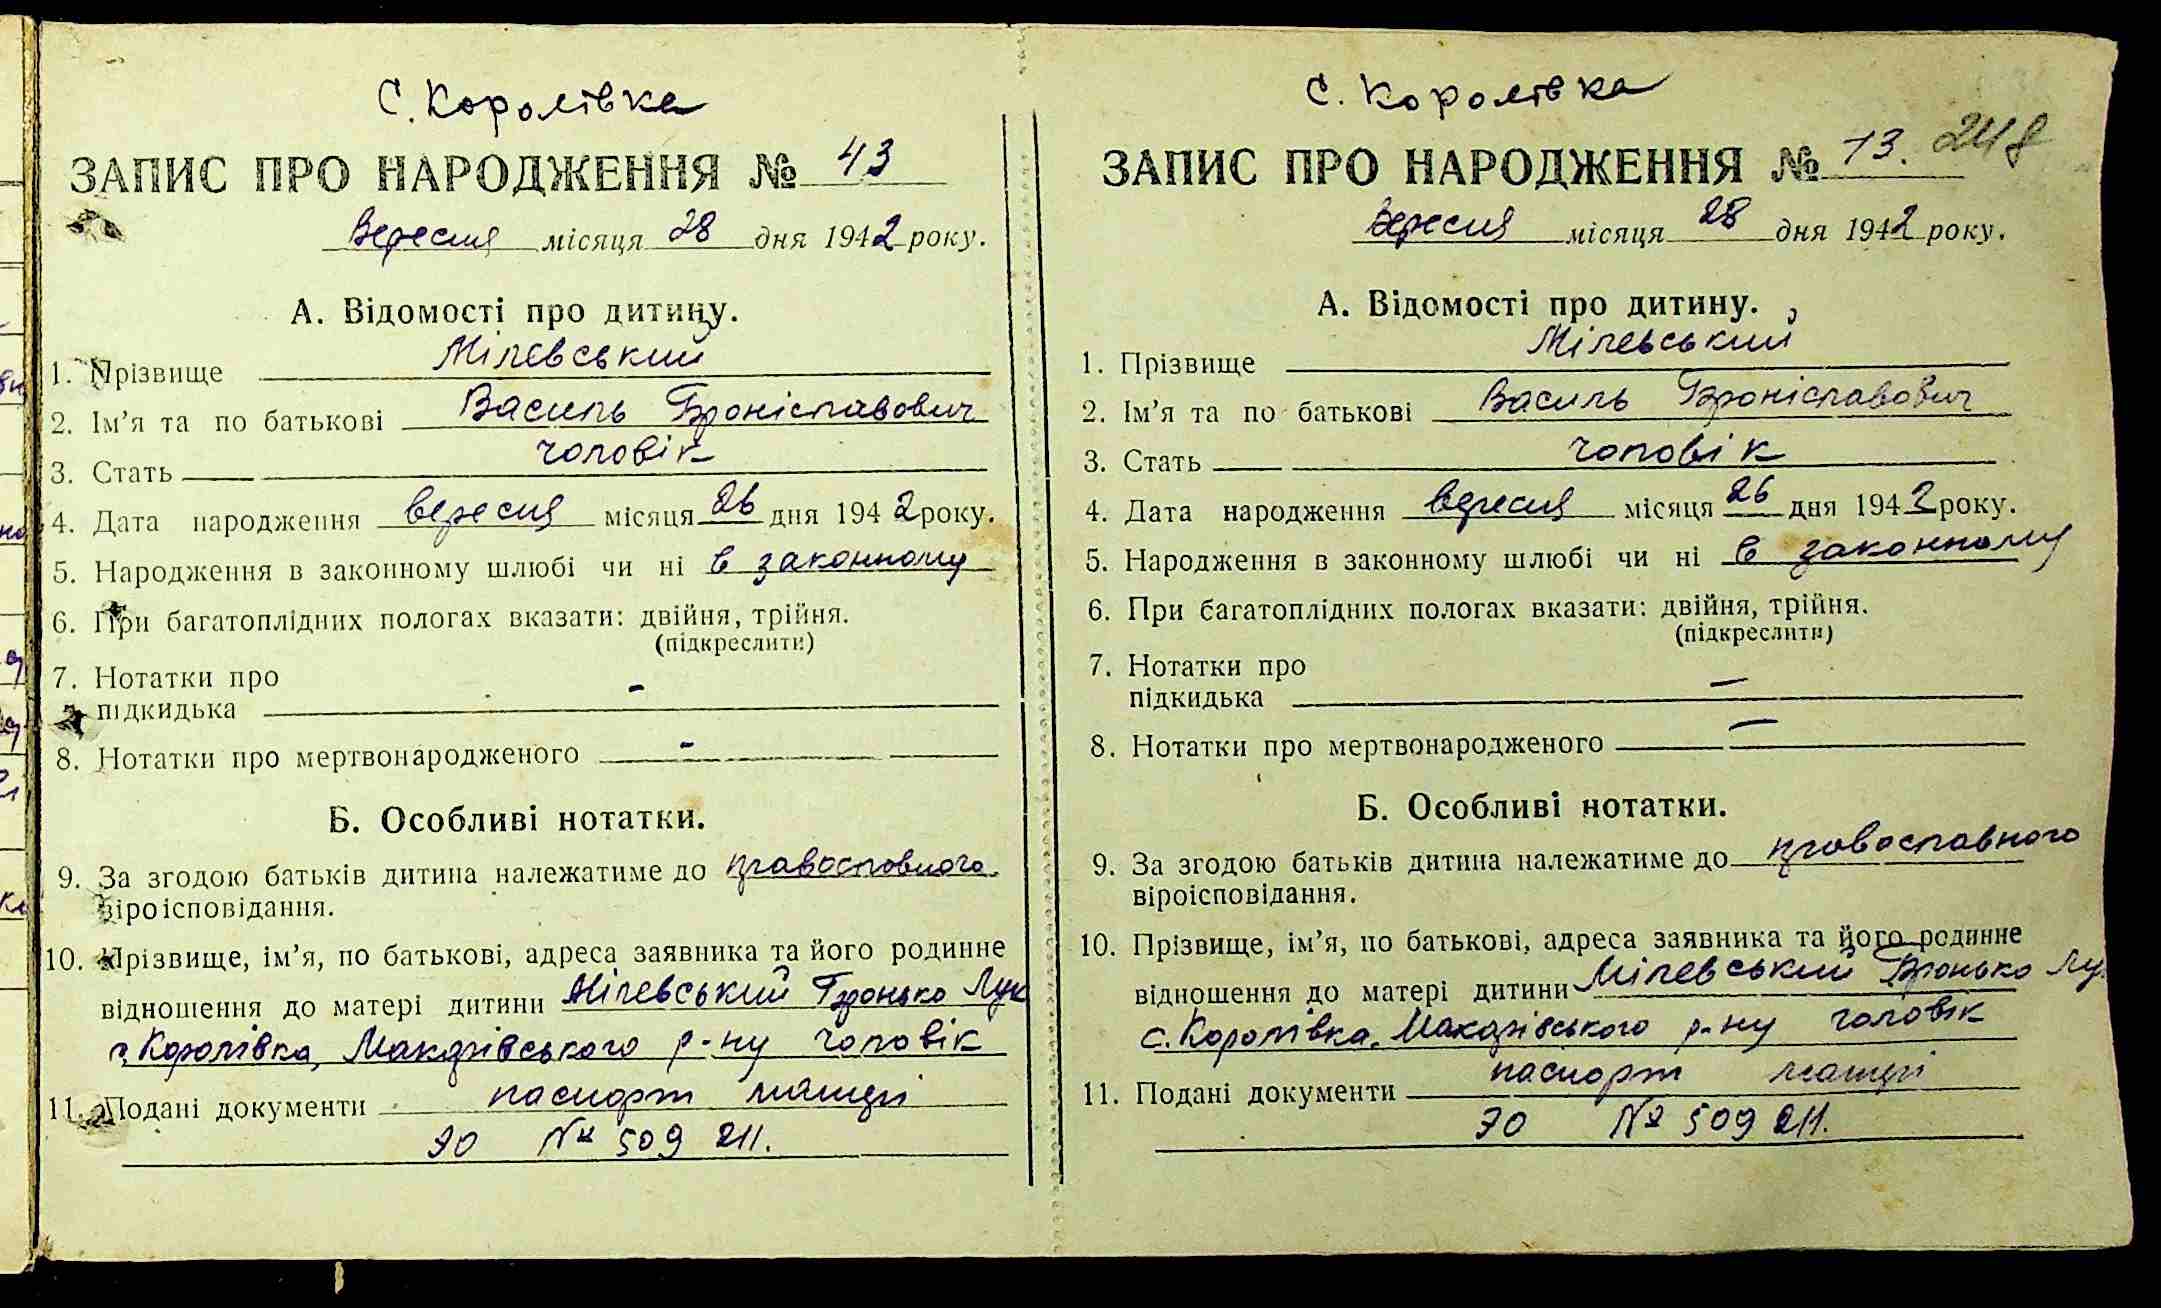 с. Королівка
ЗАПИС ПРО НАРОДЖЕННЯ № 43
Вересня місяця 28 дня 1942 року.
А. Відомості про дитину.
1. Прізвище Мілєвський
2. Ім'я та по батькові Василь Броніславович
3. Стать чоловік
4. Дата народження вересня місяця 26 дня 1942 року.
5. Народження в законному шлюбі чи ні в законному
6. При багатоплідних пологах вказати: двійня, трійня.
(підкреслити)
7. Нотатки про
підкидька –
8. Нотатки про мертвонародженого –
Б. Особливі нотатки.
9. За згодою батьків дитина належатиме до православного
віроісповідання.
10. Прізвище, ім'я, по батькові, адреса заявника та його родинне
відношення до матері дитини Мілевський Бронько Лук
с. Королівка, Макарівського р-ну чоловік
11. Подані документи паспорт матері
ЭО № 509 211.
с. Королівка
ЗАПИС ПРО НАРОДЖЕННЯ № 13. 248
Вересня місяця 28 дня 1942 року.
А. Відомості про дитину.
1. Прізвище Мілевський
2. Ім'я та по батькові Василь Броніславович
3. Стать чоловік
4. Дата народження вересня місяця 26 дня 1942 року.
5. Народження в законному шлюбі чи ні в законному
6. При багатоплідних пологах вказати: двійня, трійня.
(підкреслити)
7. Нотатки про
підкидька –
8. Нотатки про мертвонародженого –
Б. Особливі нотатки.
9. За згодою батьків дитина належатиме до православного
віроісповідання.
10. Прізвище, ім'я, по батькові, адреса заявника та його родинне
відношення до матері дитини Мілевський Бронько Лу
с. Королівка, Макарівського р-ну чоловік
11. Подані документи паспорт матері
ЭО № 509 211.